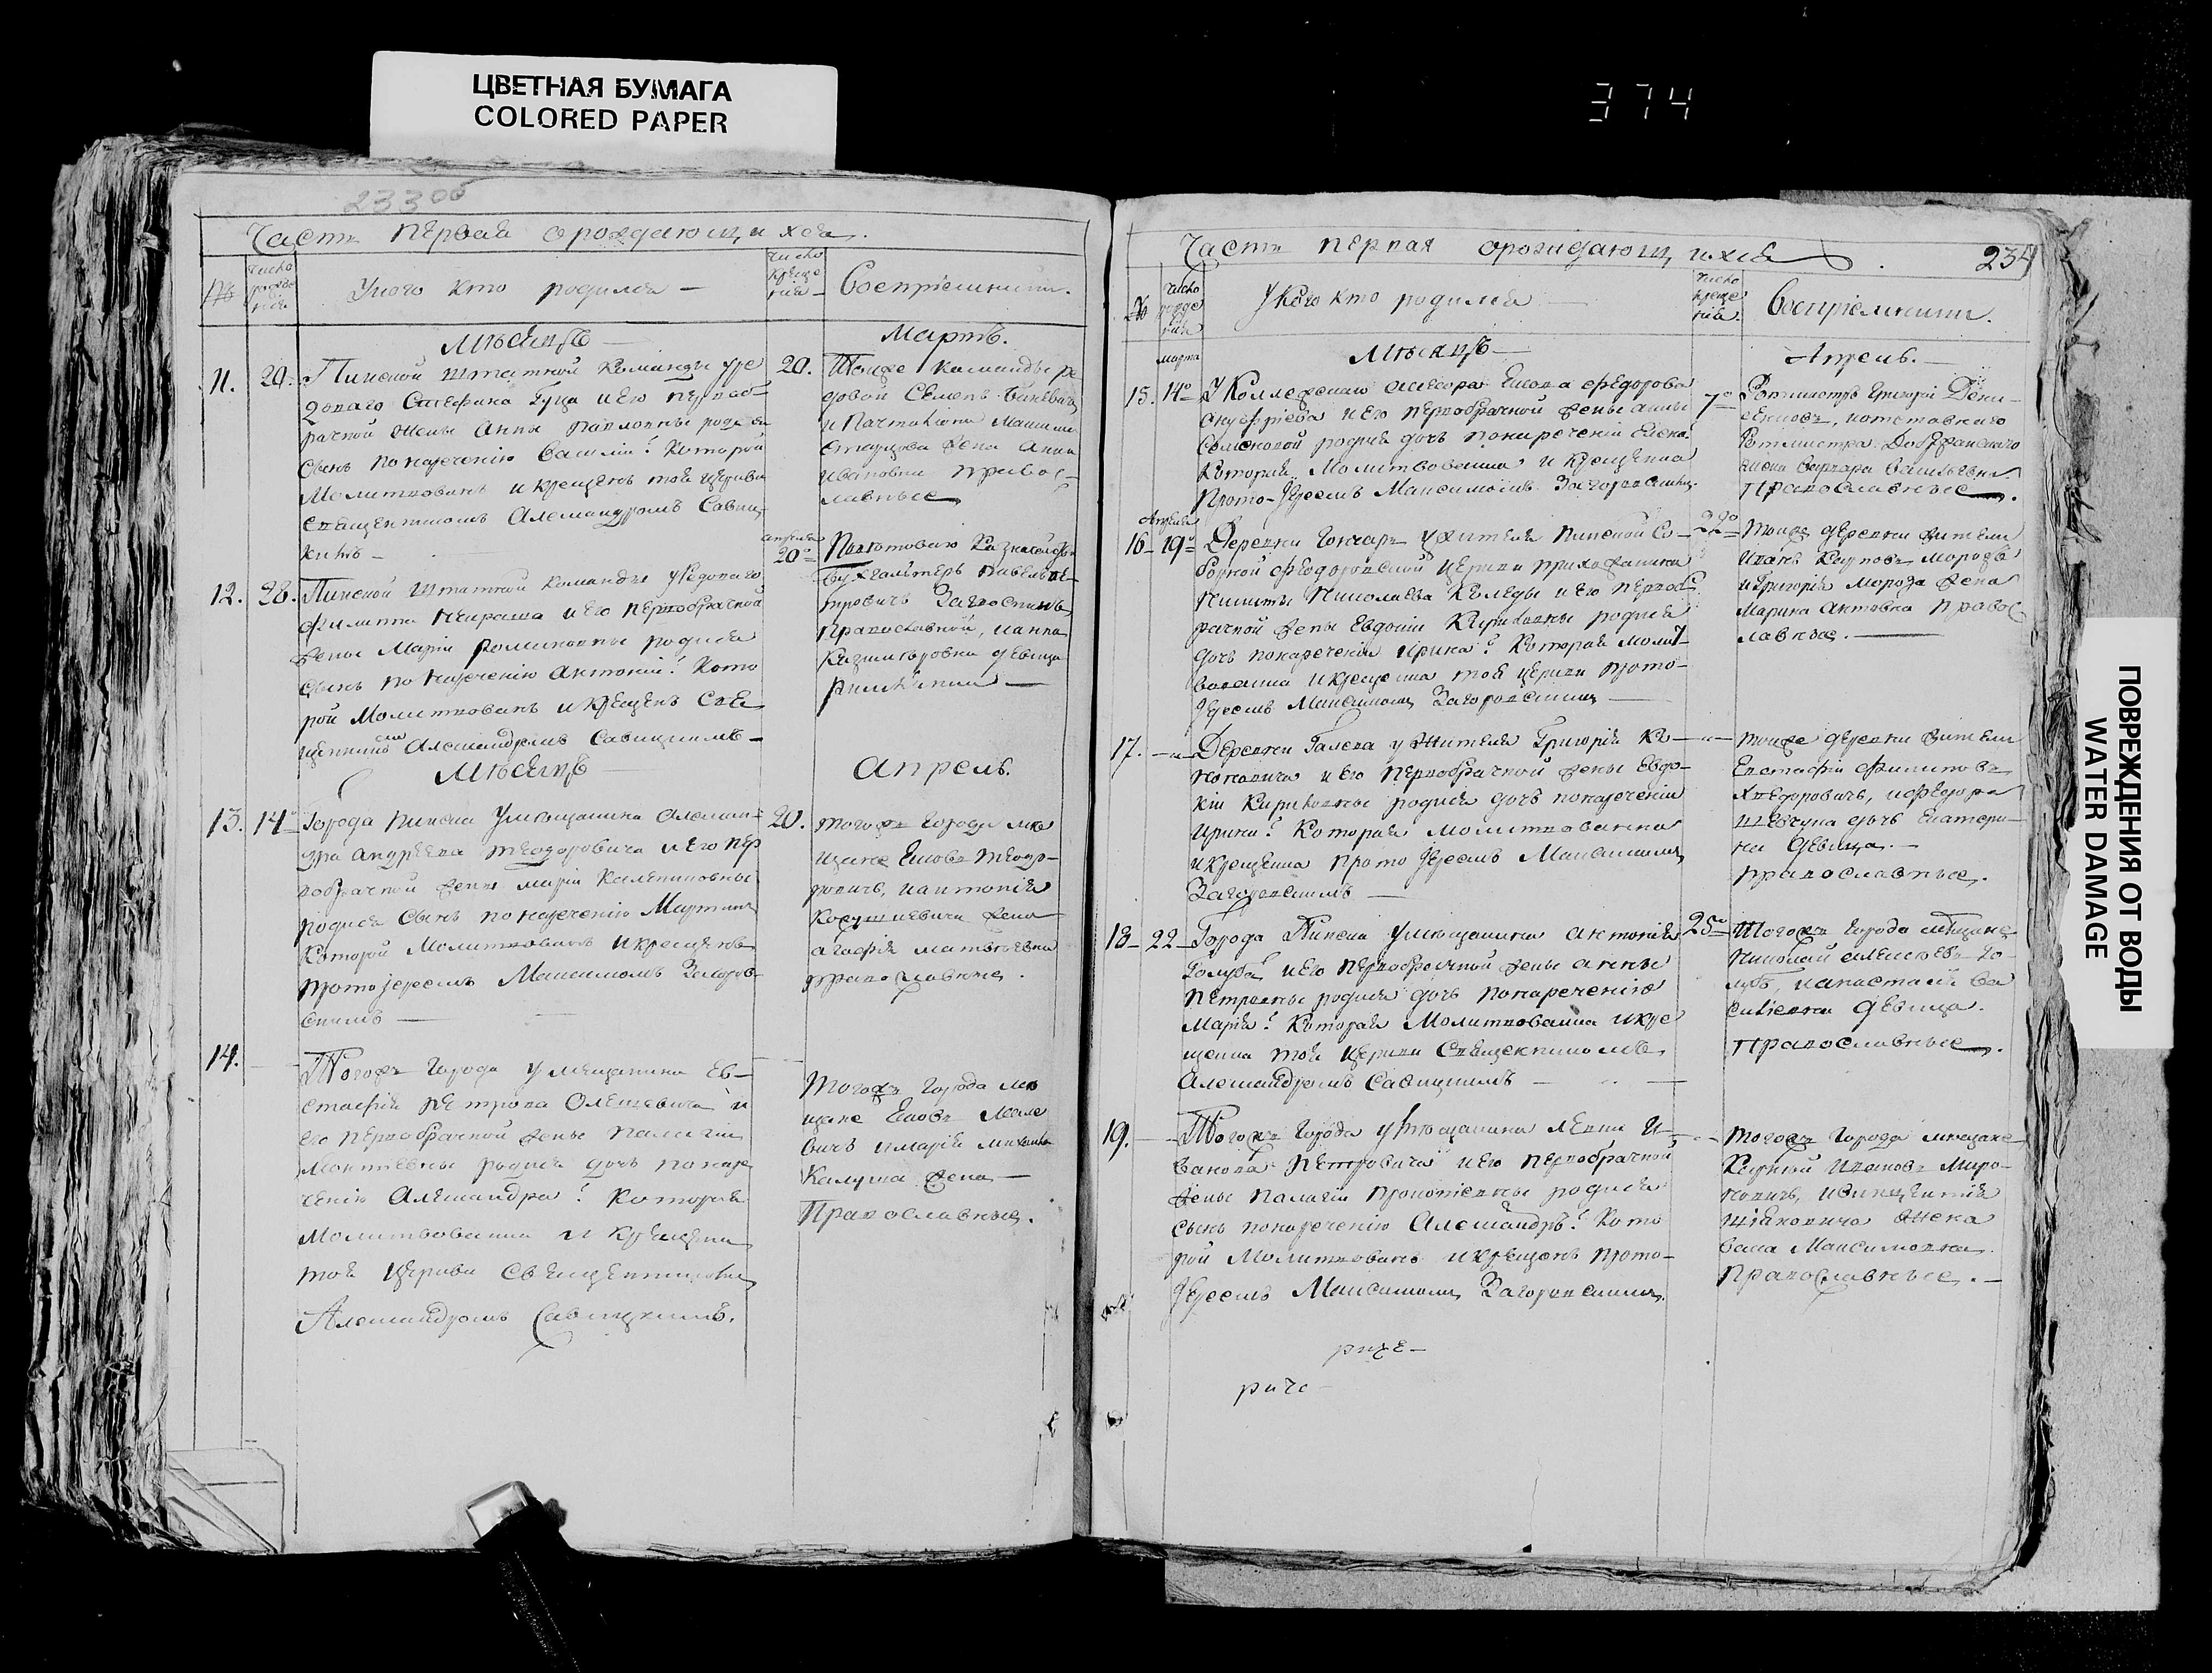 ЦВЕТНАЯ БУМАГА
COLORED PAPER
374
233 об
Часть первая о рождающихся.
№
число рожде нія
У кого кто родился —
число креще нія —
Воспріемники.
Мѣсяцъ — Мартъ.
11. 20. Пинской штатной команды у ре
доваго Стефана Гуца и его первоб-
рачной жены Анны Павловны родися
сынъ по нареченію Василій: которой
Молитвованъ и крещенъ той церкви
священникомъ Александромъ Савиц-
кимъ —
20. Тойже команды ре
довой Семенъ
и
жена Анна
Ивановна правос-
лавные
12. 28. Пинской штатной команды у редоваго
Филиппа и его первобрачной
жены Маріи Романовны родися
сынъ по нареченію Антоній: кото
рой Молитвованъ и крещенъ свя
щенникомъ Александромъ Савицкимъ —
апреля
20 Казначейс
бухгальтеръ Павелъ Пе-
тровичъ
православной, и анна
Казимировна девица
римлянка —
Мѣсяцъ — Апрель.
13. 14 Города Пинска у мещанина Алексан-
дра Андреева Теодоровича и его пер
вобрачной жены Маріи Калениковны
родися сынъ по нареченію Мартинъ
Которой Молитвованъ и крещенъ
протоіереемъ Максимомъ Загоров-
скимъ —
20. Тогожъ города ме
щане Яковъ Теодо-
ровичъ, и антонія
жена
агафія матвеевна
православные.
14. Тогожъ города у мещанина Ев-
стафія Петрова Олешевича и
его первобрачной жены Палагіи
родися дочь по наре
ченію Александра: которая
молитвованна и крещена
той церкви Священникомъ
Александромъ Савицкимъ.
Тогожъ города ме
щане Яковъ
вичъ и марія
жена —
Православные.
Часть первая о рождающихся.
234
№
число рожде нія
У кого кто родился
число креще нія.
Воспріемники.
марта
Мѣсяцъ — Апрель. —
15. 14 У Коллежскаго асесора Якова Федорова
Ануфріева и его первобрачной жены анны
Семеновой родися дочь по нареченіи Елена:
которая Молитвованна и крещенна
Прото-Іереемъ Максимомъ Загоровскимъ.
7 Ротмистръ Григорій Дени-
совъ, и отставнаго
Ротмистра
жена Варвара Васильевна
Православные.
Апреля
16 — 19 Деревни Гончаръ у жителя Пинской Со-
борной Феодоровской церкви прихожанина
Никиты Николаева Коледы и его первоб-
рачной жены Евдокіи Кириловны родися
дочь по нареченіи Ирина: которая молит-
вованна и крещена той церкви Прото-
Іереемъ Максимомъ Загоровскимъ —
22 Тойже деревни жители
Иванъ Карповъ Морозъ
и Григорія Мороза жена
Марина правос
лавные. —
17. Деревни Галева у жителя Григорія Ко-
ноновича и его первобрачной жены Евдо-
кіи Кириловны родися дочь по нареченіи
Ирина: которая молитвованна
и крещенна Прото Іереемъ Максимомъ
Загоровскимъ —
Тойже деревни жители
Евстафій Филиповъ
и федора
Шевчука дочь Екатери-
на девица. —
православные.
18 — 22 — Города Пинска у мещанина антонія
Голуба и его первобрачной жены анны
Петровны родися дочь по нареченію
Марія: которая Молитвованна и кре
щенна той церкви Священникомъ
Александромъ Савицкимъ —
25 Тогожъ города мещане
Николай Го-
лубъ, и анастасія Ва
силіевна девица.
Православные.
19. Тогожъ города у мещанина И-
ванова Петровича и его первобрачной
жены Палагіи Прокопіевны родися
сынъ по нареченію Александръ: кото
рой Молитвованъ и крещенъ Прото-
Іереемъ Максимомъ Загоровскимъ.
Тогожъ города мещане
Иванов Миро-
новичъ,
жена
Максимовна
Православные. —
ПОВРЕЖДЕНИЯ ОТ ВОДЫ
WATER DAMAGE